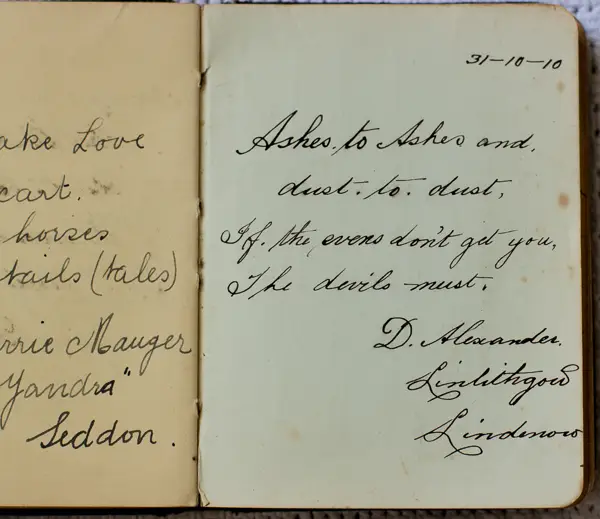 ake Love
cart.
horses
tails (tales)
rrie Mauger
Yandra"
Seddon.
31-10-10
Ashes, to Ashes and,
dust. to. dust,
If. the, evens don't get you,
The devils must.
D. Alexander.
Linlithgow
Lindenow